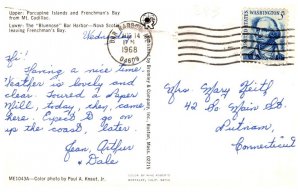 Upper: Porcupine Islands and Frenchman's Bay
from Mt. Cadillac.
Lower: The "Bluenose" Bar Harbor - Nova Scotia
leaving Frenchman's Bay.
Wednesday
Hi!
Having a nice time.
Weather is lovely and
clear. Toured a Paper
Mill, today, they came
here. Expect to go on
up the coast later.
Jean, Arthur
& Dale
AUG 14
PM
1968
04609
WASHINGTON
5¢
Mrs Mary Keith
42 So Main St.
Putnam,
Connecticut
ME1043A—Color photo by Paul A. Knaut, Jr.